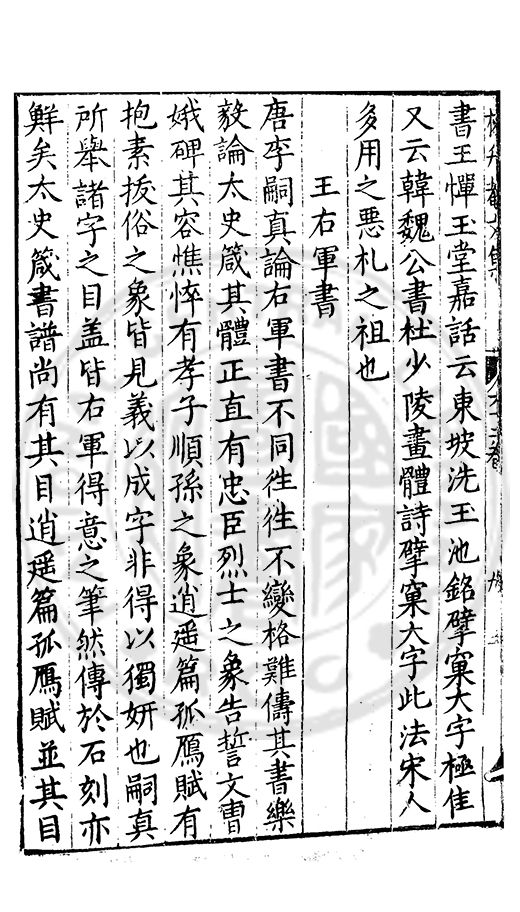 書王惲玉堂嘉話云東坡洗玉池銘擘窠大字極佳
又云韓魏公書杜少陵畫體詩擘窠大字此法宋人
多用之惡札之祖也
王右軍書
唐李嗣真論右軍書不同徃徃不變格難儔其書樂
毅論太史箴其體正直有忠臣烈士之象告誓文曹
娥碑其容憔悴有孝子順孫之象逍遥篇孤鴈賦有
抱素拔俗之象皆見義以成字非得以獨妍也嗣真
所舉諸字之目盖皆右軍得意之筆然傳於石刻亦
鮮矣太史箴書譜尚有其目逍遥篇孤鴈賦並其目